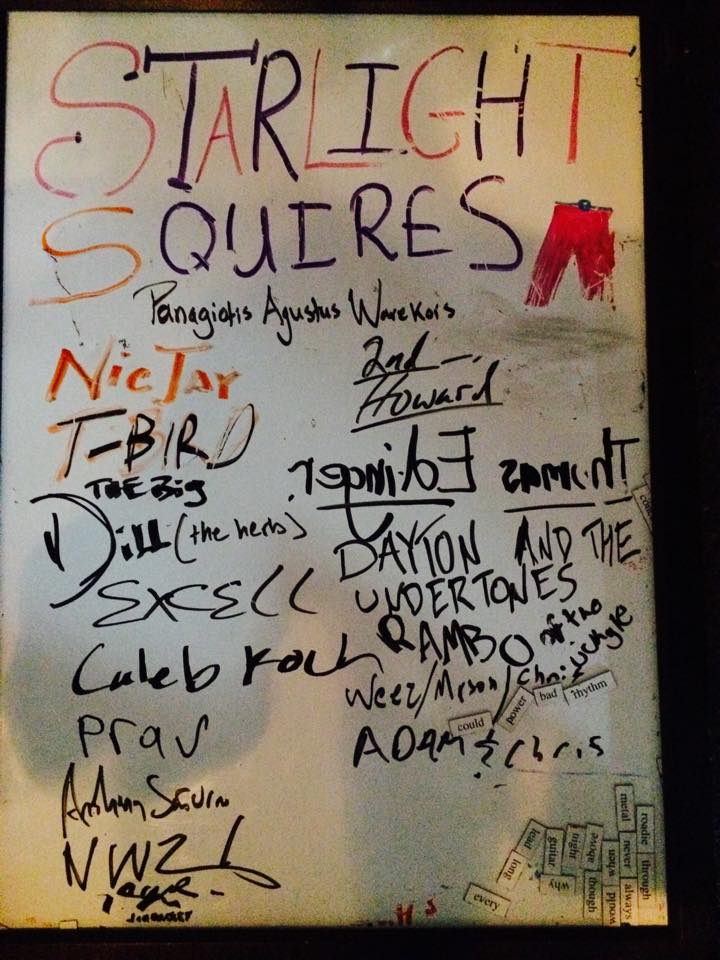 STARLIGHT
SQUIRES
Panagiotis Agustus Warekois
NicTay
T-BIRD
THE Big
Dill (the herb)
EXCELL
Caleb Koch
Prav
NWZ
2nd
Howard
Thomas Edinger
DAYTON AND THE
UNDERTONES
RAMBO of the
jungle
Weez/Mason/Chris
ADAM & Chris
could
power
bad
rhythm
could
metal
roadie
never
through
when
always
above
would
though
night
why
guitar
lead
long
every